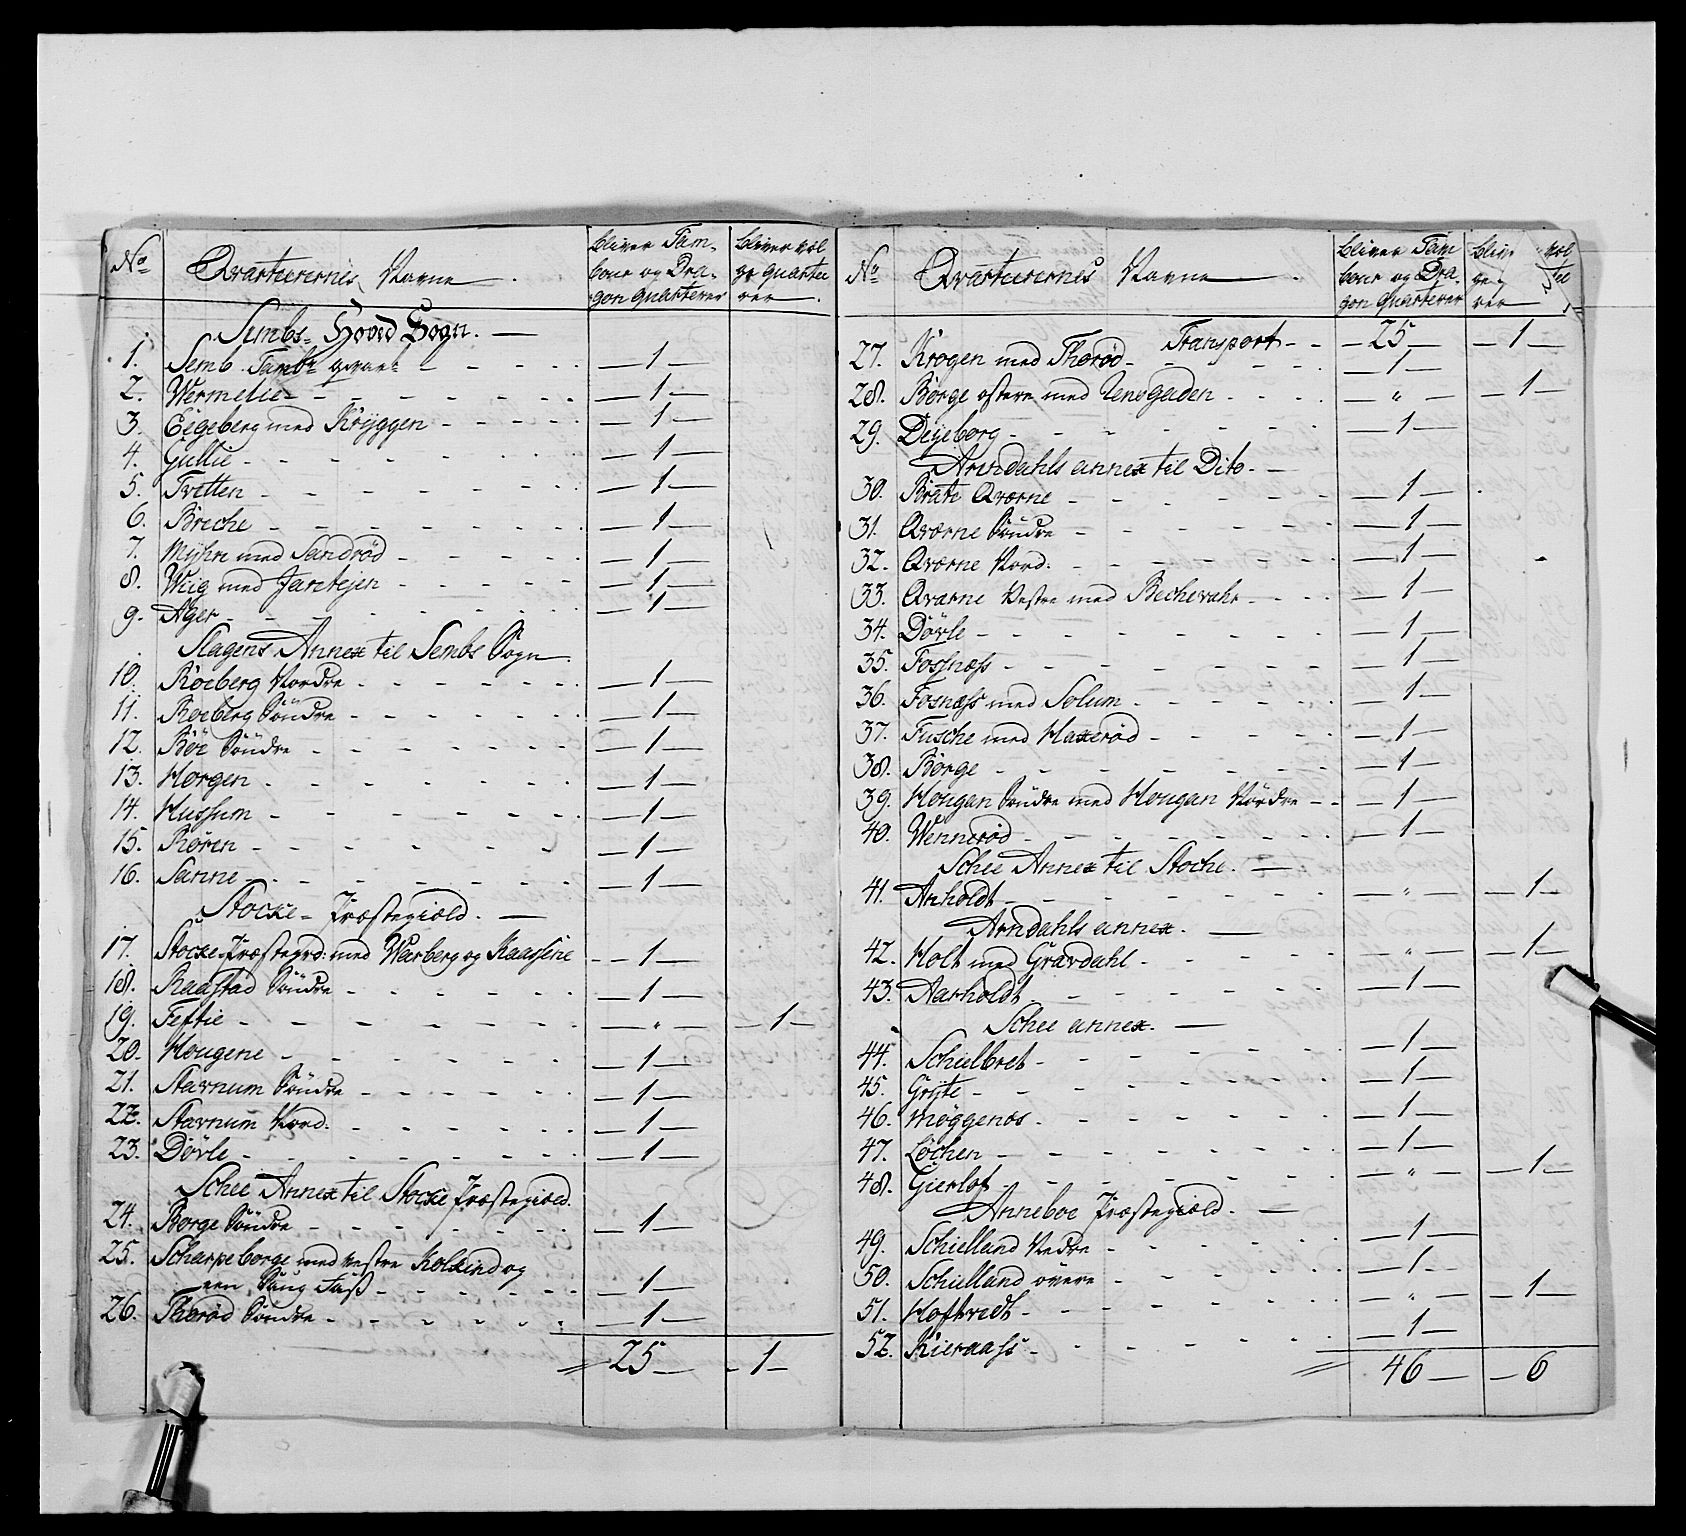 No Qvarteerernes Navne. bliver Tam-
bour og Dra-
gon quarterer bliver vol
ge quartee
rer
Sembs Hoved Sogn.
1. Semb Tambr - 1
2. Wermelie - 1
3. Eegeberg med Kryggen - 1
4. Gullie - 1
5. Tvetten - 1
6. Breche - 1
7. Myhre med Sandrød - 1
8. Wiig med Jareteien - 1
9. Ager - 1
Slagens Annex til Sembs Sogn
10. Roeberg Nordre - 1
11. Roeberg Søndre - 1
12. Böe Søndre - 1
13. Horgen - 1
14. Hussum - 1
15. Røren - 1
16. Sanne - 1
Stocke Præstegield.
17. Stocke Præstegrd: med Warberg og Kaassene - 1
18. Raastad Søndre - 1
19. Feftie - " - 1
20. Hougene - 1
21. Stavnum Søndre - 1
22. Stavnum Nord: - 1
23. Døvle - 1
Schee Annex til Stocke Præstegield.
24. Borge Søndre - 1
25. Scharpeborge med vestre Kolkind og
een 1
26. Thorød Søndre - 1
25 - 1
No Qvarteerernes Navne. bliver Tam
bour og Dra-
gon quarterer bliv vol
ge
rer
Transport - 25 - 1
27. Krogen med Thorød - 1
28. Borge østere med - " - 1
29. Deyeborg - 1
Arndahls annex til Dito.
30. Brate Qværne - 1
31. Qværne Søndre - 1
32. Qværne Nord: - 1
33. Qvarne Vestre med Bechevahr - 1
34. Døvle - 1
35. Fossnæss - 1
36. Fosnæss med Solum - 1
37. Fusche med Haxerød - 1
38. Borge - 1
39. Hougan Søndre med Hougan Nordre - 1
40. Wennerød - 1
Schee Annex til Stoche.
41. Anholdt - " - 1
Arndahls annex.
42. Holt med Gravdahl - " - 1
43. Aarholdt - 1
Schee annex.
44. Schielbret - 1
45. Gryte - 1
46. Møggenos - 1
47. Løchen - 1
48. Gierlof - " - 1
Anneboe Præstegield.
49. Schielland Nedre - 1
50. Schielland øvere - 1
51. Hoftvedt - " - 1
52. Kieraass - 1
46 - 6